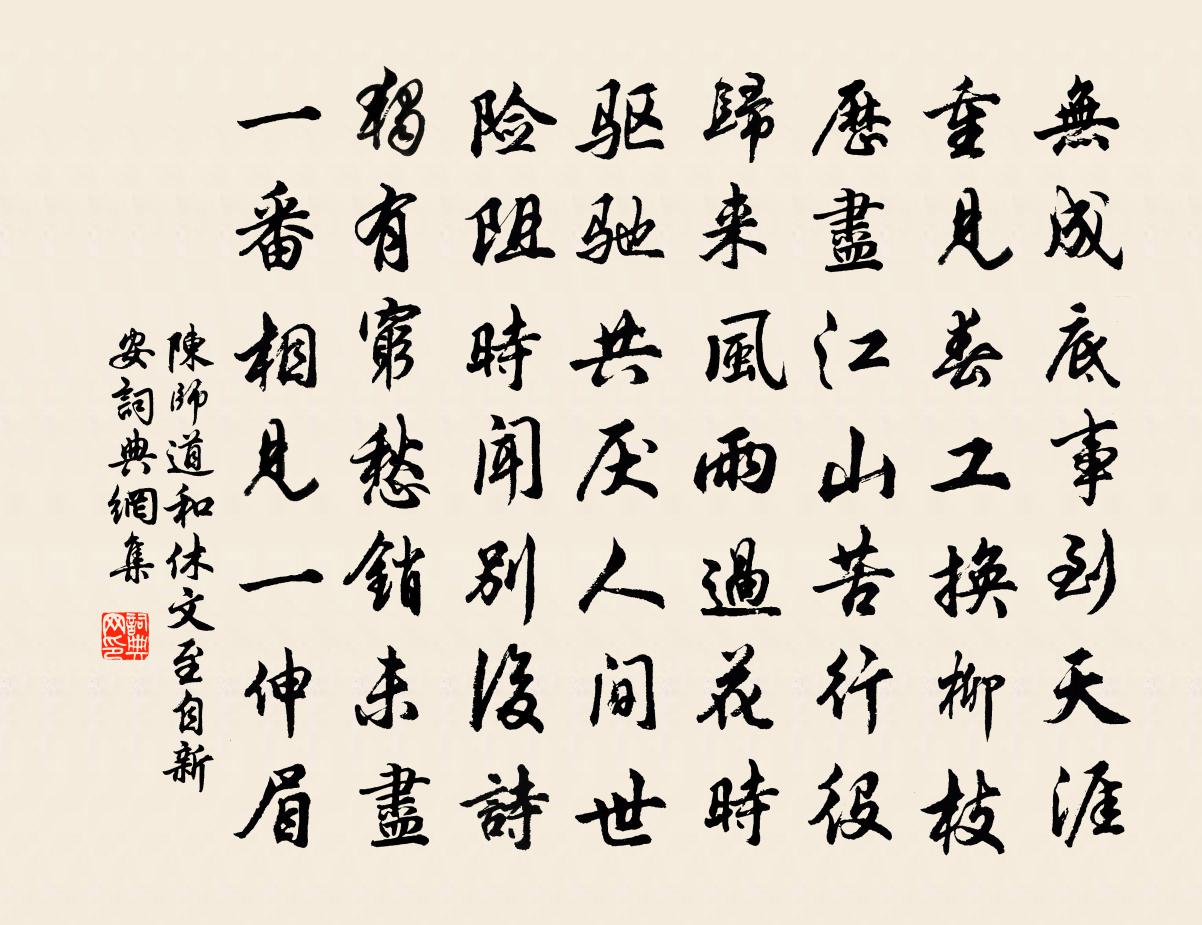 無成底事到天涯
重見春工換柳枝
歷盡江山苦行役
歸来風雨過花時
驱驰共厌人间世
险阻時聞别後詩
獨有窮愁銷未盡
一番相見一伸眉
陳師道和休文至自新
安詞典網集
詞典网印